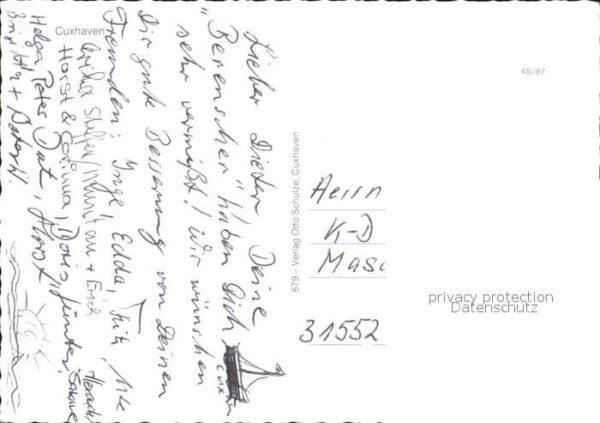 Cuxhaven
45/97
Lieber Dieter, Deine
"Berenscher" haben Dich
sehr vermißt! Wir wünschen
Dir gute Besserung von Deinen
Freunden: Inge, Edda, Fritz, Ute
Erich
Horst & Corinna, Doris, Günter,
Helga, Peter,
679 – Verlag Otto Schulze, Cuxhaven
Herrn
K-D
Masc
31552
privacy protection
Datenschutz